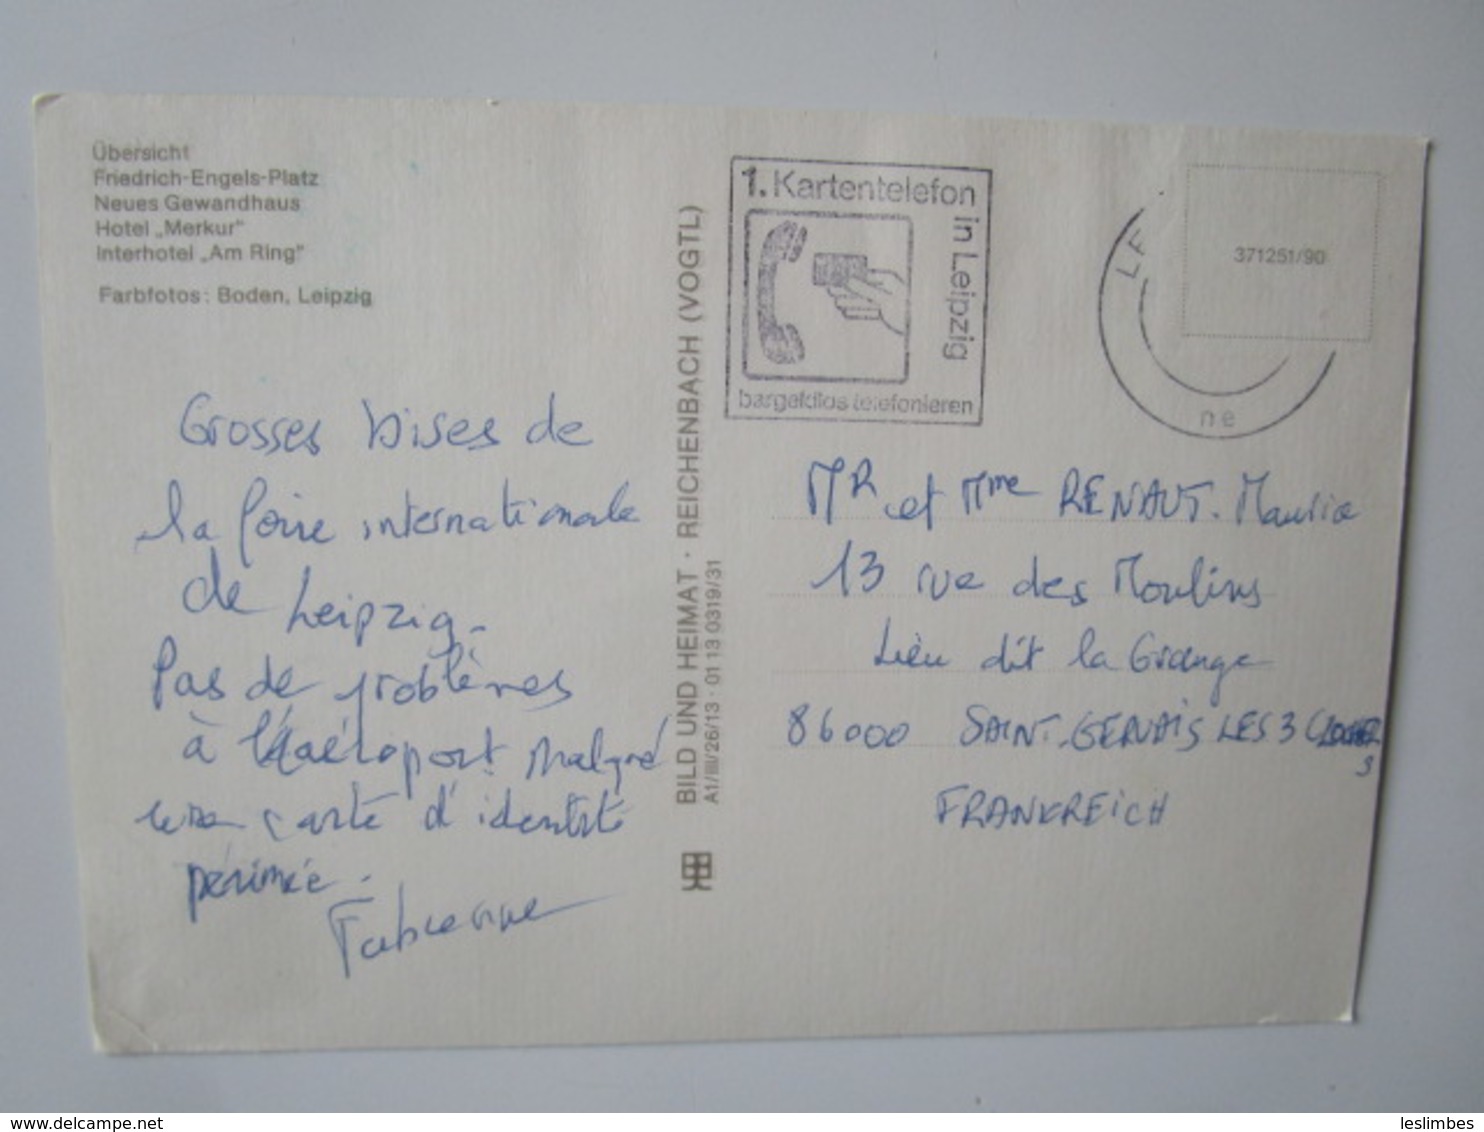 Übersicht
Friedrich-Engels-Platz
Neues Gewandhaus
Hotel „Merkur“
Interhotel „Am Ring“
Farbfotos: Boden, Leipzig
Grosses bises de
la foire internationale
de Leipzig.
Pas de problèmes
à l'aéroport malgré
une carte d'identité
périmée.
Fabienne
BILD UND HEIMAT · REICHENBACH (VOGTL)
A1/III/26/13 · 01 13 0319/31
1. Kartentelefon
in Leipzig
bargeldlos telefonieren
371251/90
ne
MR et Mme RENAUT. Maurice
13 rue des Moulins
Lieu dit la Grange
86000 SAINT-GERVAIS LES 3 CLOCHERS
FRANKREICH
delcampe.net
leslimbes